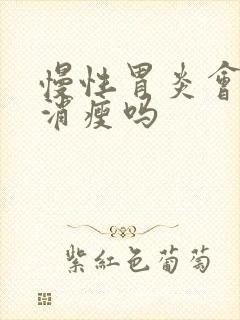 慢性胃炎會
消瘦吗
紫紅色葡萄